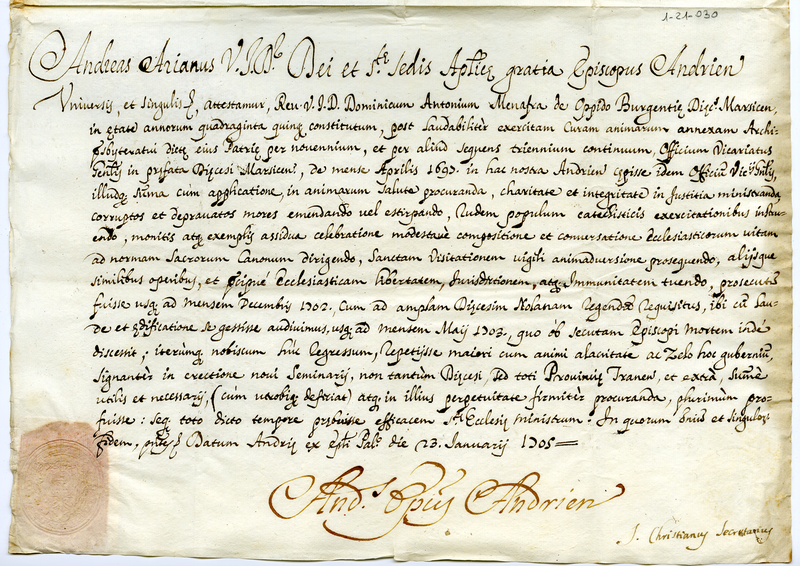 1-21-030
Andreas Arianus V.I.D. Dei et S. Sedis Aplicę gratia Episcopus Andrien
Universis, et singulis, attestamur, Rev. V.I.D. Dominicum Antonium Menafra de Oppido Burgentię Dięc. Marsicen,
in ętate annorum quadraginta quinq constitutum, post laudabilitèr exercitam Curam animarum annexam Archi-
pbyteratui dictę eius Patrię per novennium, et per aliud sequens triennium continuum, Officium Vicariatus
Gentis in prefata Dięcesi Marsicen, de mense Aprilis 1697. in hac nostra Andrien idem Officiũ
illudq summa cum applicatione, in animarum salute procuranda, charitate et integritate in Justitia ministranda
corruptos et depravatos mores emendando vel estirpando, Rudem populum catechisticis exercitationibus instru-
endo, monitis atq exemplis assidua celebratione modestaq compositione et conversatione Ecclesiasticorum vitam
ad normam Sacrorum Canonum dirigendo, Sanctam Visitationem vigili animadversione prosequendo, alijsque
similibus operibus, et Ecclesiasticam libertatem, Jurisdictionem, atq Immunitatem tuendo, prosecutum
fuisse usq ad mensem Decembris 1702. Cum ad amplam Dięcesim Nolanam Regendã Requisitus, ibi cũ Lau-
de et ędificatione se gessisse audivimus, usq ad mensem Maij 1703, quo ob secutam Episcopi Mortem inde
discessit; iterumq nobiscum huc Regressum, Repetijsse maiori cum animi alacritate ac Zelo hoc guberniũ,
signantèr in erectione novi Seminarij, non tantùm Dięcesi, sed toti Provincię Tranen, et extrà, sumè
utilis et necessarij, (cùm utrobiq) atq in illius perpetuitate firmitèr procuranda, plurimùm pro-
fuisse: seq toto dicto tempore prębuisse efficacem S. Ecclesię ministrum. In quorum omniũ et singulorũ
fidem, Datum Andrię ex Epli Pal. die 23. Januarij 1705
And.s Epũs Andrien
J. Christianus Secretarius